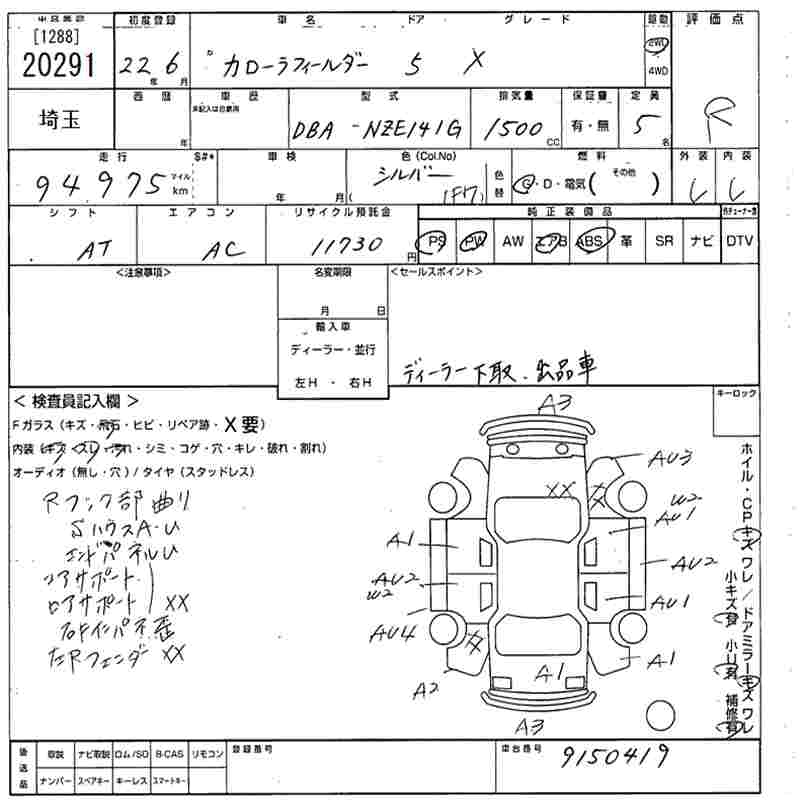 [1288]
20291
初度登録
22年6月
車名 ドア グレード
カローラフィールダー 5 X
駆動
2WD
4WD
評価点
R
埼玉
西暦
年
車歴
未記入は自家用
型式
DBA-NZE141G
排気量
1500 CC
保証書
有・無
定員
5名
走行
94,975
マイル
km
S#*
車検
年 月
色(Col.No)
シルバー
(1F7)
色替
燃料
G・D・電気( その他 )
外装 内装
シフト
AT
エアコン
AC
リサイクル預託金
11730円
純正装備品
PS PW AW エアB ABS 革 SR ナビ DTV
<注意事項>
名変期限
月 日
輸入車
ディーラー・並行
左H・右H
<セールスポイント>
ディーラー下取.出品車
<検査員記入欄>
Fガラス(キズ・飛石・ヒビ・リペア跡・X要)
内装(キズ・スレ・汚れ・シミ・コゲ・穴・キレ・破れ・割れ)
オーディオ(無し・穴)/タイヤ(スタッドレス)
Rフック部曲り
SハウスA-U
エンドパネルU
コアサポート
ロアサポート XX
右FインパネU
左RフェンダXX
キーロック
A3
AU3
XX
W2
AU1
A1
AU2
AU2
W2
AU1
AU4
XX
A1
A1
A2
A3
ホイル・CPキズワレ/ドアミラーキズワレ
小キズ有 小U有 補修有
後送品
取説 ナビ取説 ロム/SD B-CAS リモコン
ナンバー スペアキー キーレス スマートキー
登録番号
車台番号
9150419